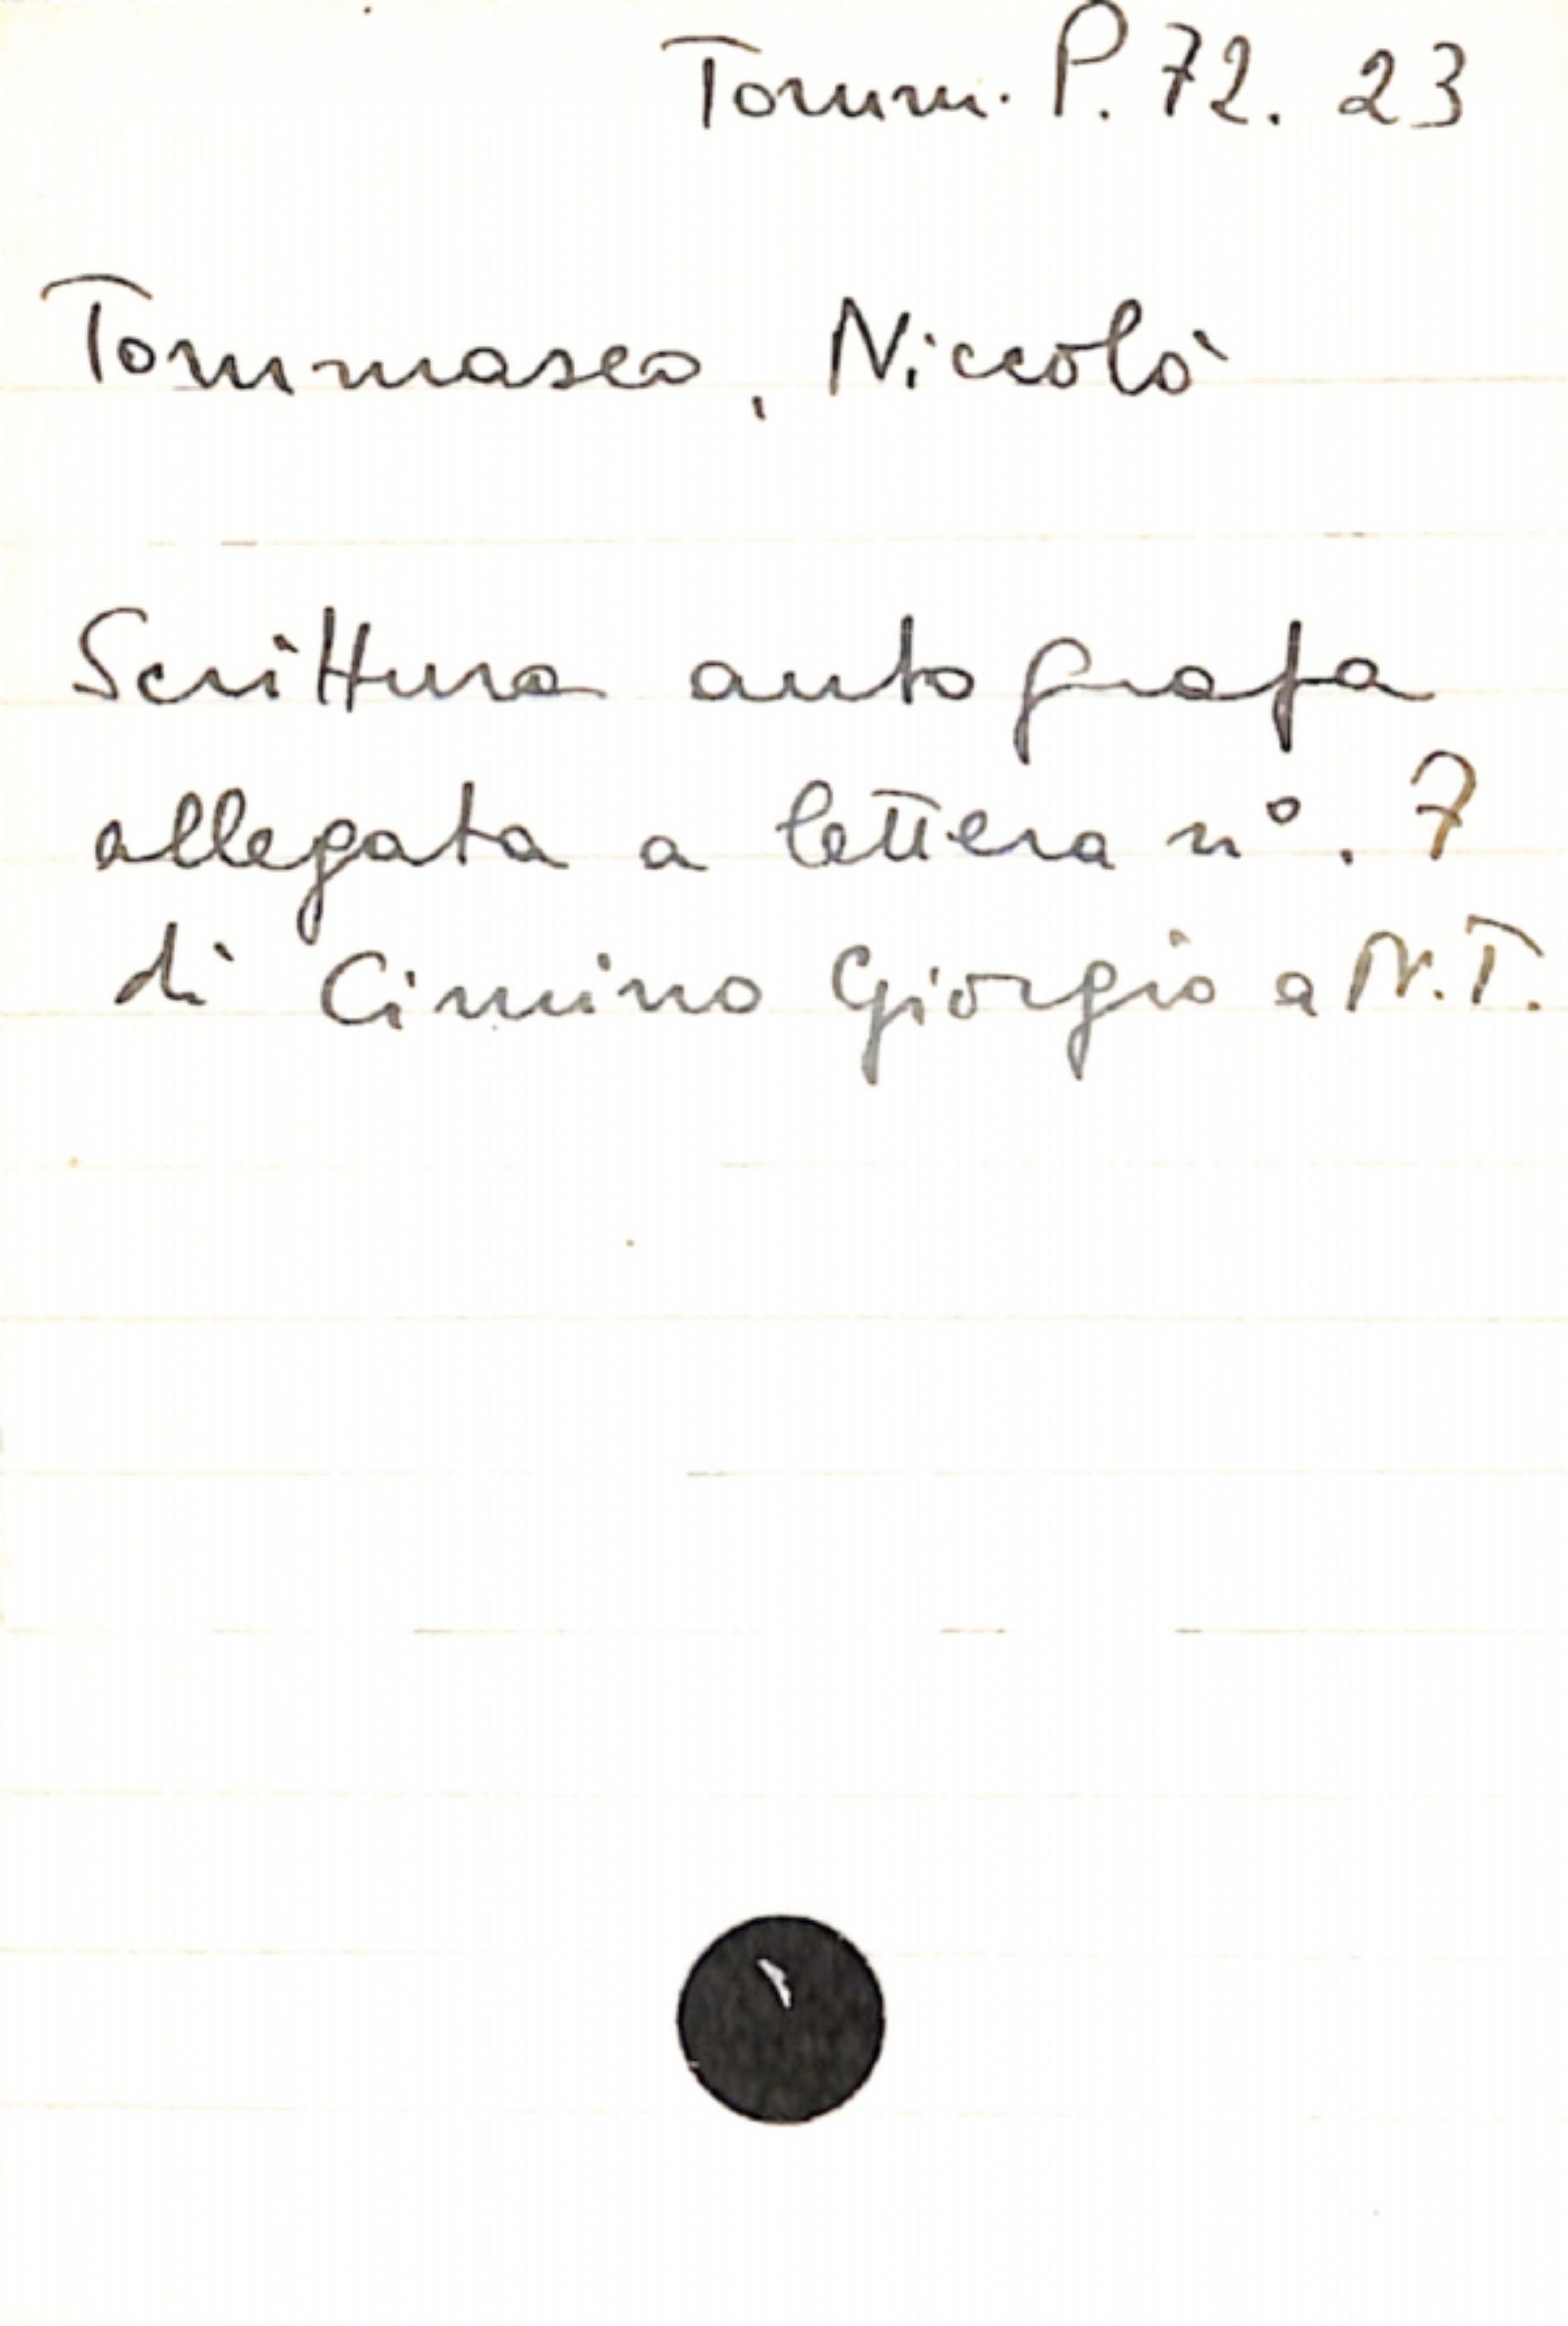 Tomm. P. 72. 23
Tommaseo, Niccolò
Scrittura autografa
allegata a lettera n°. 7
di Cimino Giorgio a N.T.